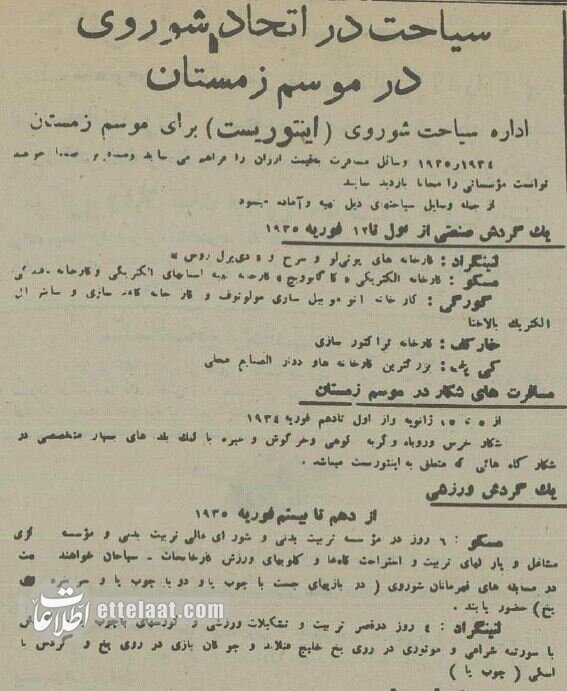 سیاحت در اتحاد شوروی
در موسم زمستان
اداره سیاحت شوروی ( اینتوریست ) برای موسم زمستان
۱۹۳۴ر۱۹۳۵ وسائل مسافرت بقیمت ارزان را فراهم می نماید
توانست مؤسساتی را مجانا بازدید نمایند
از جمله وسایل سیاحتهای ذیل تهیه و آماده میشود
یك گردش صنعتی از اول تا ۱۲ فوریه ۱۹۳۵
لنینگراد : کارخانه های پوتی‌لو و سرخ و
مسکو : کارخانه الکتریکی « کاگانویچ » کارخانه اسبابهای الکتریکی و کارخانه
گورگی : کارخانه اتوموبیل سازی مولوتوف و کارخانه کاغذ سازی و سانترال
الکتریك بالاخنا
خارکف : کارخانه تراکتور سازی
کی یف : بزرگترین کارخانه ها و صنایع محلی
مسافرت های شکار در موسم زمستان
از ۵ تا ۱۵ ژانویه و از اول تا دهم فوریه ۱۹۳۴
شکار خرس و روباه و گربه کوهی و خرگوش و غیره با کمك بلد های بسیار متخصصی در
شکار گاه هائی که متعلق به اینتوریست میباشد .
یك گردش ورزشی
از دهم تا بیستم فوریه ۱۹۳۵
مسکو : ۶ روز در مؤسسه تربیت بدنی و شورای عالی تربیت بدنی و مؤسسه
مشاغل و پارکهای تربیت و استراحت گاهها و کلوبهای ورزش کارخانجات - سیاحان خواهند
در مسابقه های قهرمانان شوروی ( در بازیهای جست با چوب پا و دو با چوب پا و
یخ ) حضور یابند .
لنینگراد : ۴ روز در قصر تربیت و تشکیلات ورزشی و کورسهای با چوب
با سورتمه شراعی و موتوری در روی یخ خلیج فنلاند و چوگان بازی در روی یخ و گردش با
اسکی ( چوب پا )
اطلاعات
ettelaat.com